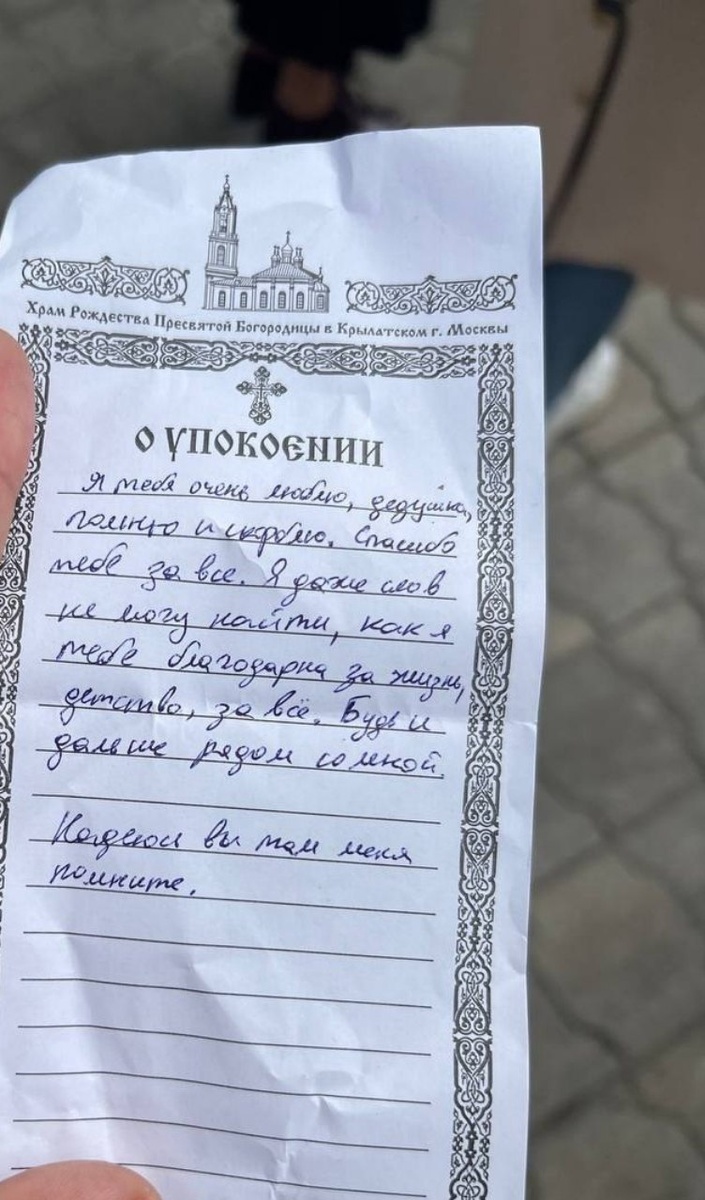 Храм Рождества Пресвятой Богородицы в Крылатском г. Москвы
О УПОКОЕНИИ
Я тебя очень люблю, дедушка,
помню и скорблю. Спасибо
тебе за все. Я даже слов
не могу найти, как я
тебе благодарна за жизнь,
детство, за всё. Будь и
дальше рядом со мной.
Надеюсь вы там меня
помните.